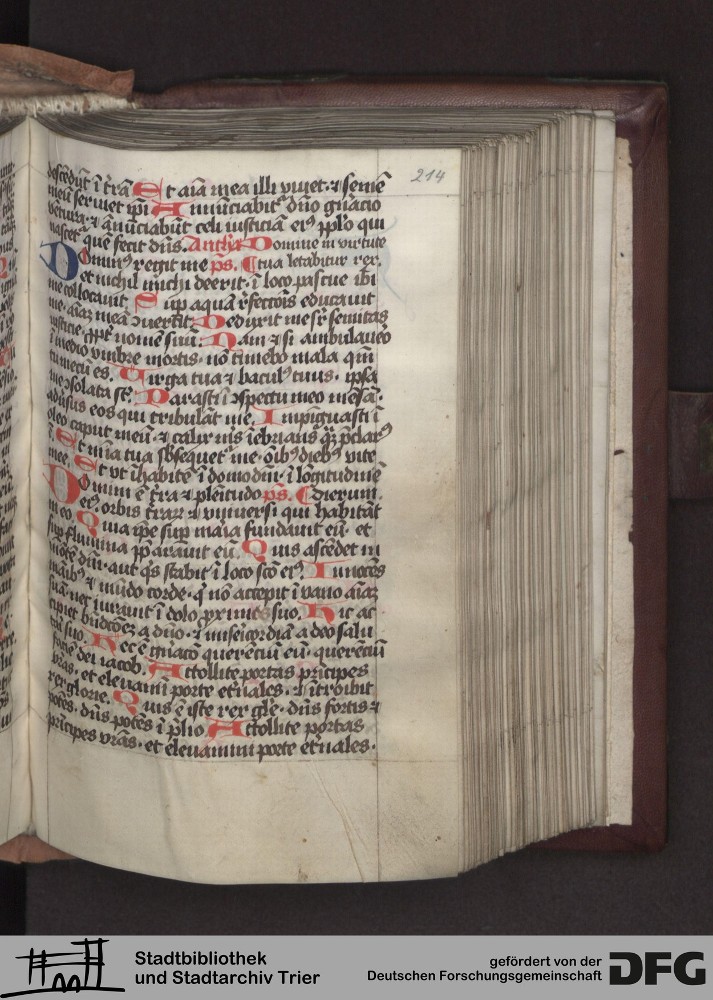 214
descēdūt ī trāꝫ Et aīa mea illi viuet · ⁊ semē
meū seruiet ip̄i Annūciabit᷑ dn̄o gn̄acio
vētura · ⁊ an̄ūciabūt celi iusticiā eiꝰ pplo qui
nascet᷑ quē fecit dn̄s . Domine in virtute
Domin᷑ regit me ps. tua letabitur rex .
et nichil michi deerit · ī loco pascue ibi
me collocauit Sup aquā r̄fectōis educauit
me · aīaꝫ meā ↄuertit Deduxit me sr̄ semitas
iusticie · ppt̄ nomē suū Nam ⁊ si ambulauero
ī medio vmbre mortis · nō timebo mala qm̄
tu mecū es . Virga tua ⁊ baculꝰ tuus · ipsa
me ↄsolata st̄ . Parasti ī ↄspectu meo mēsā ·
adūsus eos qui tribulāt me , Impīguasti ī
oleo caput meū · ⁊ calix mīs īebrians qꝫ p̄clarꝰ
ē . Et mīa tua sb̄sequet᷑ me · oībꝰ diebꝰ vite
mee . Et vt īhabitē ī domo dn̄i · ī lōgitudinē
Domini ē tr̄a ⁊ plēitudo ps. dierum .
eiꝰ · orbis trāꝝ ⁊ vniuersi qui habitāt
in eo . Quia ip̄e sup maīa fundauit eū · et
sup flumina pp̄arauit eū . Quis ascēdet in
mōtē dn̄i · aut qͥs stabit ī loco scō eiꝰ . Innocēs
māibꝰ ⁊ mūdo corde · qͥ nō accepit ī vano aīaꝫ
suā · nec iurauit ī dolo ꝓximo suo . Hic ac
cipiet bn̄dictōeꝫ a dn̄o · ⁊ misericordiā a deo salu
tari suo . Hec ē gn̄acō querēciū eū · querēciū
faciē dei iacob . Attollite portas prīcipes
vr̄as · et eleuamī porte et̄nales · ⁊ ītroibit
rex glorie . Quis ē iste rex gl̄e · dn̄s fortis ⁊
potēs · dn̄s potēs ī p̄lio Attollite portas
prīcipes vr̄as · et eleuamini porte et̄nales ·
Stadtbibliothek
und Stadtarchiv Trier
gefördert von der
Deutschen Forschungsgemeinschaft
DFG